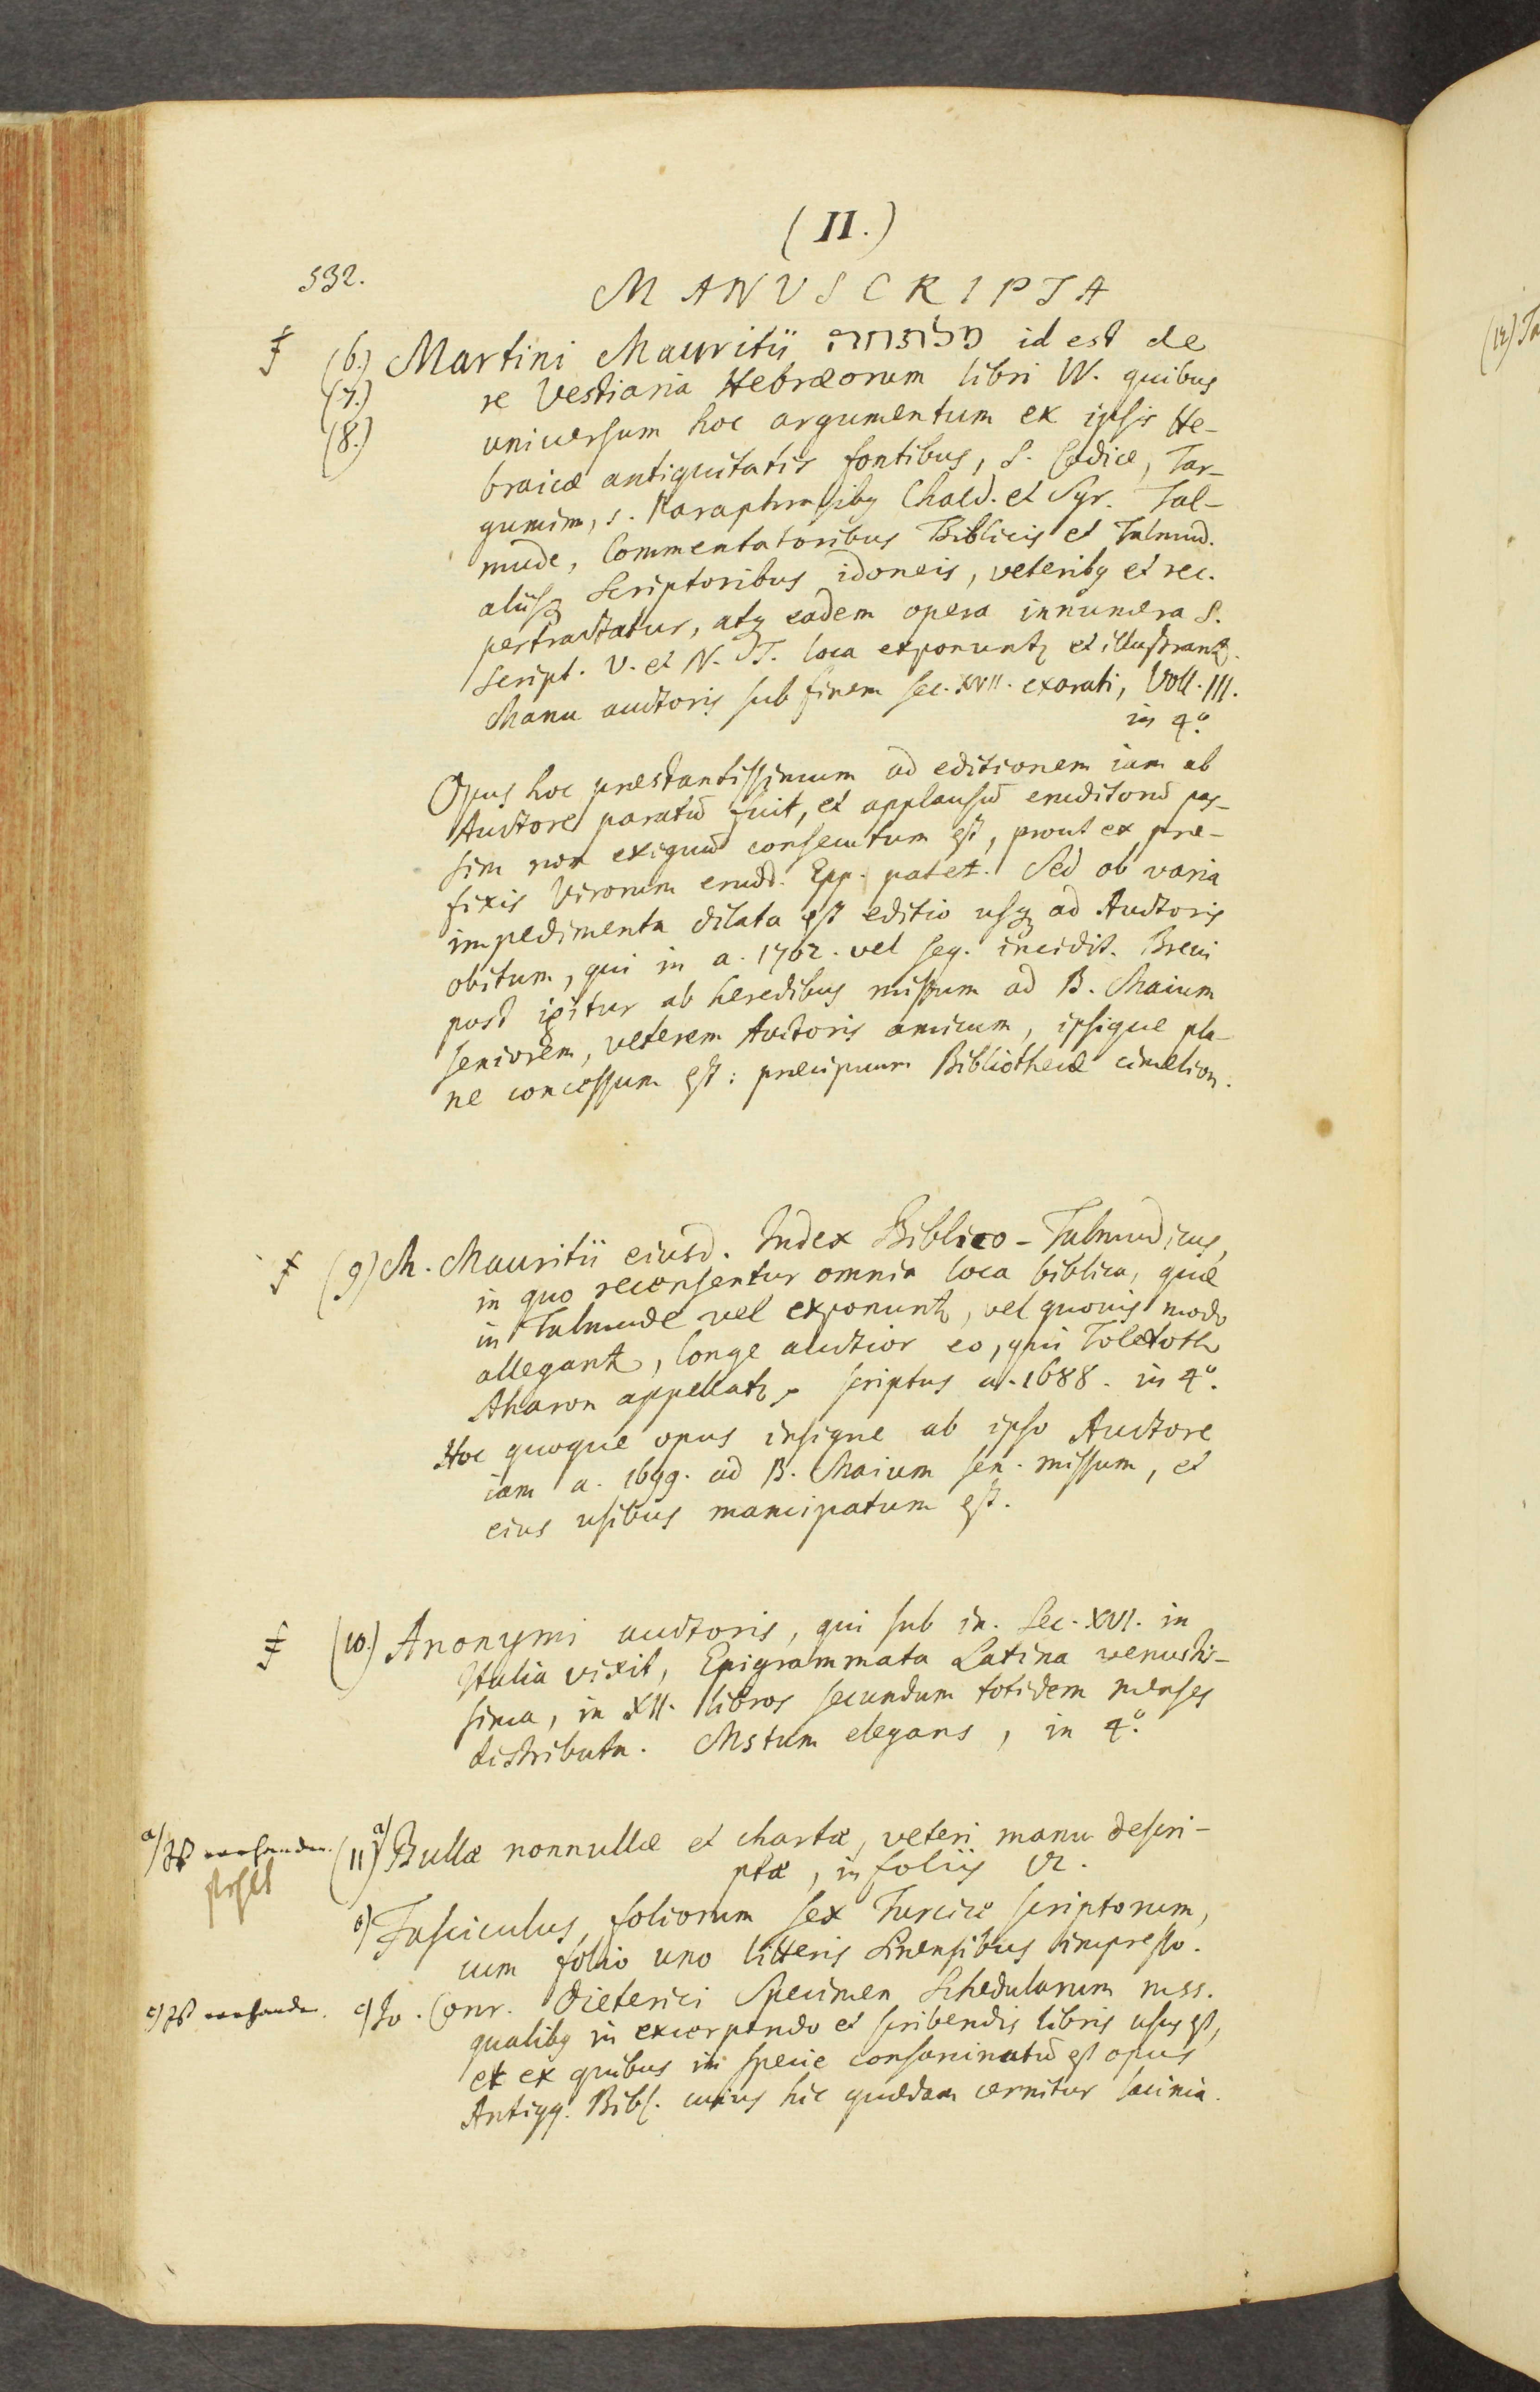 (II.)
532.
MANUSCRIPTA
(6.) Martini Mauritii id est de
(7.) re Vestiaria Hebræorum libri IV. quibus
(8.) universum hoc argumentum ex ipsis He-
braicæ antiquitatis fontibus, S. Codice, Tar-
gumim, s. Paraphrasibq Chald. et Syr. Tal-
mude, Commentatoribus Biblicis et Talmud.
aliisq Scriptoribus idoneis, veteribq et rec.
pertractatur, atq eadem opera innumera S.
Script. V. et N. T. loca exponuntr et illustrantr.
Manu auctoris sub finem sec. XVII. exarati, Voll. III.
in 4°.
Opus hoc præstantissimum ad editionem iam ab
Auctore paratū fuit, et applausū eruditorū pas-
sim non exiguū consecutum est, prout ex præ-
fixis Virorum erudd. Epp. patet. Sed ob varia
impedimenta dilata est editio usq ad Auctoris
obitum, qui in a. 1702. vel seq. incidit. Brevi
post igitur ab heredibus missum ad B. Maium
seniorem, veterem Auctoris amicum, ipsique pla-
ne concessum est: præcipuum Bibliothecæ cimelion.
(9) M. Mauritii eiusd. Index Biblico-Talmudicus,
in quo recensentur omnia loca biblica, quæ
in Talmude vel exponuntr, vel quovis modo
allegantr, longe auctior eo, qui Toledoth
Aharon appellatr, scriptus a. 1688. in 4°.
Hoc quoque opus insigne ab ipso Auctore
iam a. 1699. ad B. Maium sen. missum, et
eius usibus mancipatum est.
(10.) Anonymi auctoris, qui sub in. Sec. XVI. in
Italia vixit, Epigrammata Latina venustis-
sima, in XII. libros secundum totidem menses
distributa. Mstum elegans, in 4°.
a) Ist vorhanden. (11) a) Bullæ nonnullæ et chartæ, veteri manu descri-
fehlt
ptæ, in foliis VI.
b) Fasciculus foliorum sex Turcice scriptorum,
cum folio uno litteris Sinensibus impresso.
c) Ist vorhanden. c) Jo. Conr. Dieterici Specimen Schedularum mss.
qualibq in excerpendo et scribendis libris usus est,
et ex quibus in specie consarcinatū est opus
Antiqq. Bibl. cuius hic quædam cernitur lacinia.
(12) Ta